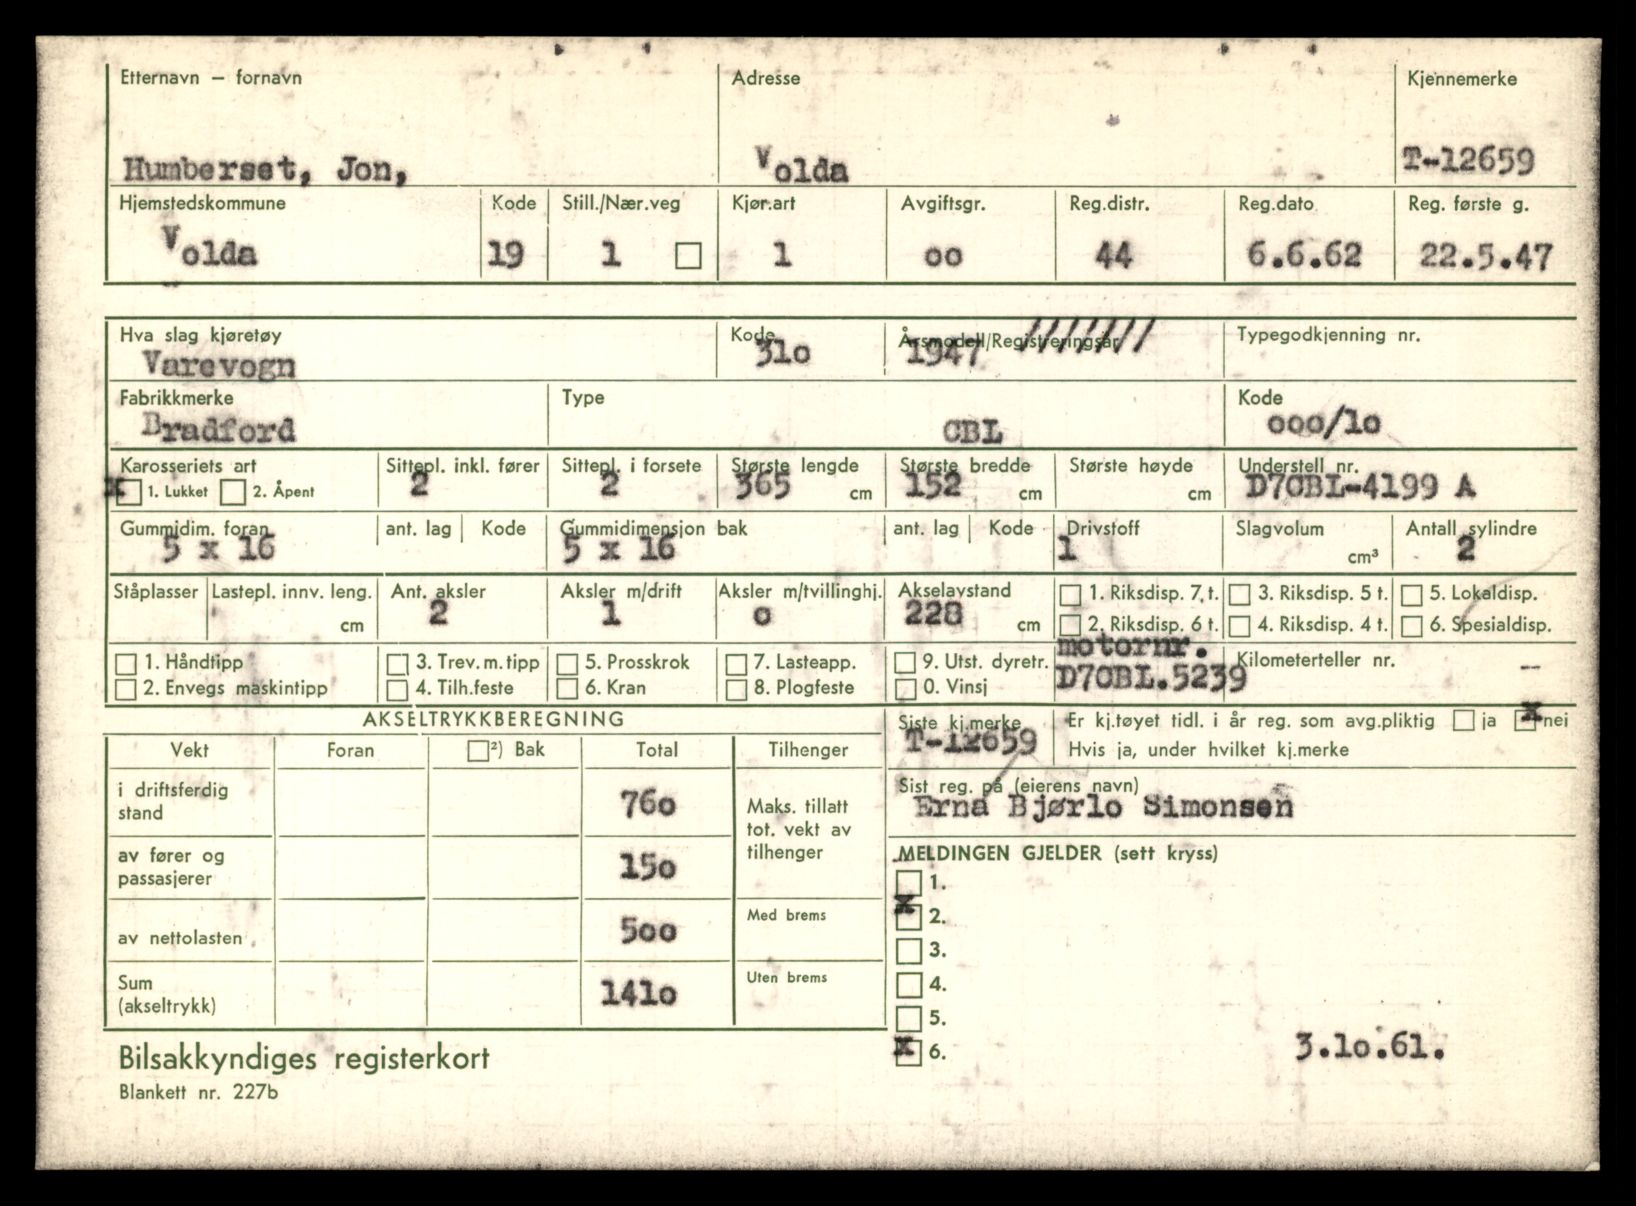 Etternavn — fornavn Adresse Kjennemerke
Humberset, Jon, Volda T-12659
Hjemstedskommune Kode Still./Nær.veg Kjør.art Avgiftsgr. Reg.distr. Reg.dato Reg. første g.
Volda 19 1 1 oo 44 6.6.62 22.5.47
Hva slag kjøretøy Kode Årsmodell/Registreringsår Typegodkjenning nr.
Varevogn 31o 1947 ////////
Fabrikkmerke Type Kode
Bradford CBL ooo/1o
Karosseriets art Sittepl. inkl. fører Sittepl. i forsete Største lengde Største bredde Største høyde Understell nr.
x 1. Lukket 2. Åpent 2 2 365 cm 152 cm cm D7CBL-4199 A
Gummidim. foran ant. lag Kode Gummidimensjon bak ant. lag Kode Drivstoff Slagvolum Antall sylindre
5 x 16 5 x 16 1 cm³ 2
Ståplasser Lastepl. innv. leng. Ant. aksler Aksler m/drift Aksler m/tvillinghj. Akselavstand 1. Riksdisp. 7 t. 3. Riksdisp. 5 t. 5. Lokaldisp.
cm 2 1 o 228 cm 2. Riksdisp. 6 t. 4. Riksdisp. 4 t. 6. Spesialdisp.
motornr.
1. Håndtipp 3. Trev.m.tipp 5. Prosskrok 7. Lasteapp. 9. Utst. dyretr. Kilometerteller nr. --
2. Envegs maskintipp 4. Tilh.feste 6. Kran 8. Plogfeste 0. Vinsj D7CBL.5239
AKSELTRYKKBEREGNING Siste kj.merke Er kj.tøyet tidl. i år reg. som avg.pliktig ja x nei
T-12659
Vekt Foran ²) Bak Total Tilhenger Hvis ja, under hvilket kj.merke
i driftsferdig stand 760 Sist reg. på (eierens navn)
Erna Bjørlo Simonsen
Maks. tillatt tot. vekt av tilhenger
av fører og passasjerer 15o MELDINGEN GJELDER (sett kryss)
1.
av nettolasten 5oo Med brems x 2.
3.
Sum (akseltrykk) 141o Uten brems 4.
5.
x 6. 3.1o.61.
Bilsakkyndiges registerkort
Blankett nr. 227b